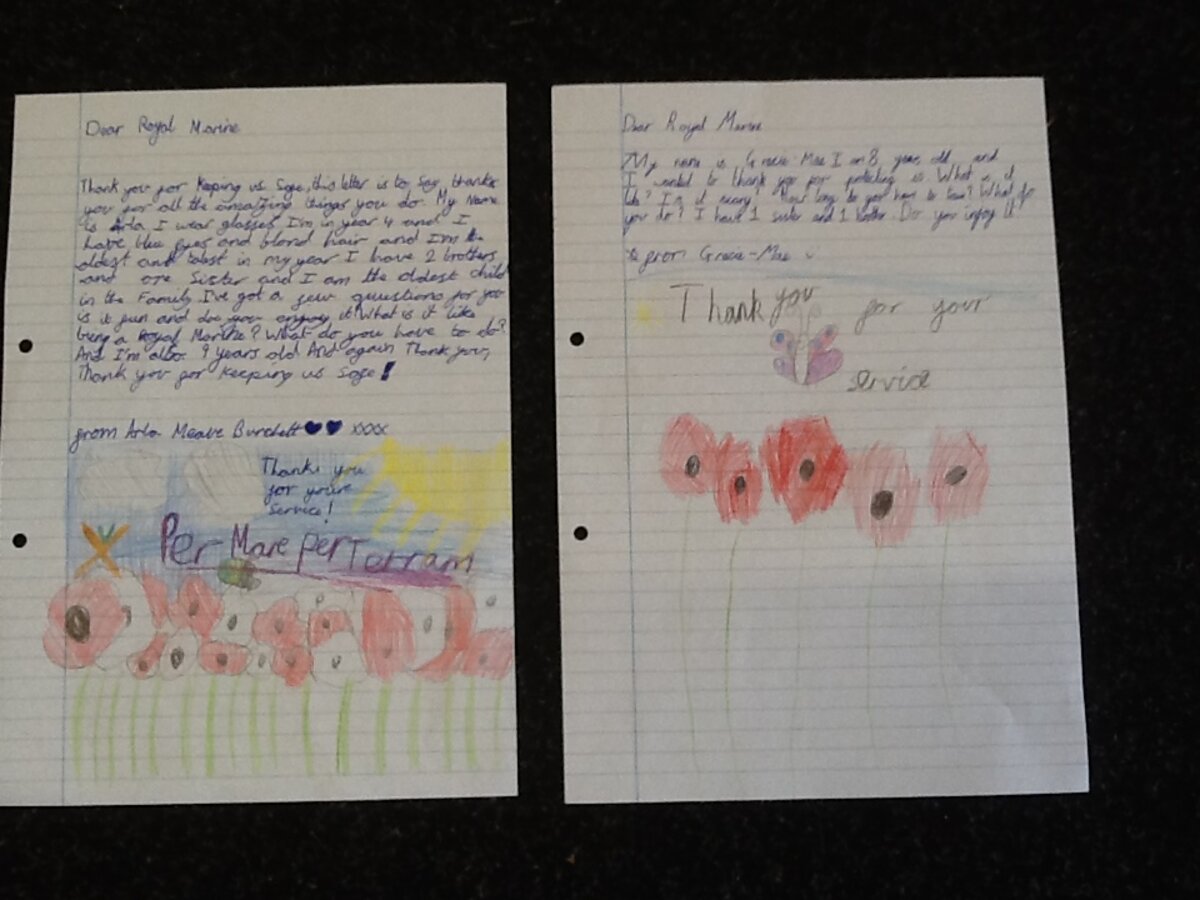 Dear Royal Marine
Thank you for keeping us Safe, this letter is to Say thanks
you for all the amazing things you do. My Name
is Arla I wear glasses I'm in year 4 and I
have blue eyes and blond hair and I'm the
oldest and in my year I have 2 brothers
and one Sister and I am the oldest child
in the Family I've got a few questions for you
is it fun and do you enjoy it What is it like
being a Royal Marine? What do you have to do?
And I'm also 9 years old And again Thank you,
Thank you for keeping us Safe!
from Arla Meave Burchett xxxx
Thanks you
for youre
Service!
Per Mare per Terram
Dear Royal Marine
My name is Gracie-Mae I am 8 year old and
I wanted to thank you for protecting us What is it
like? Is it scary? How long do you have to What do
you do? I have 1 sister and 1 brother. Do you injoy it
from Gracie-Mae
Thank you for your
service